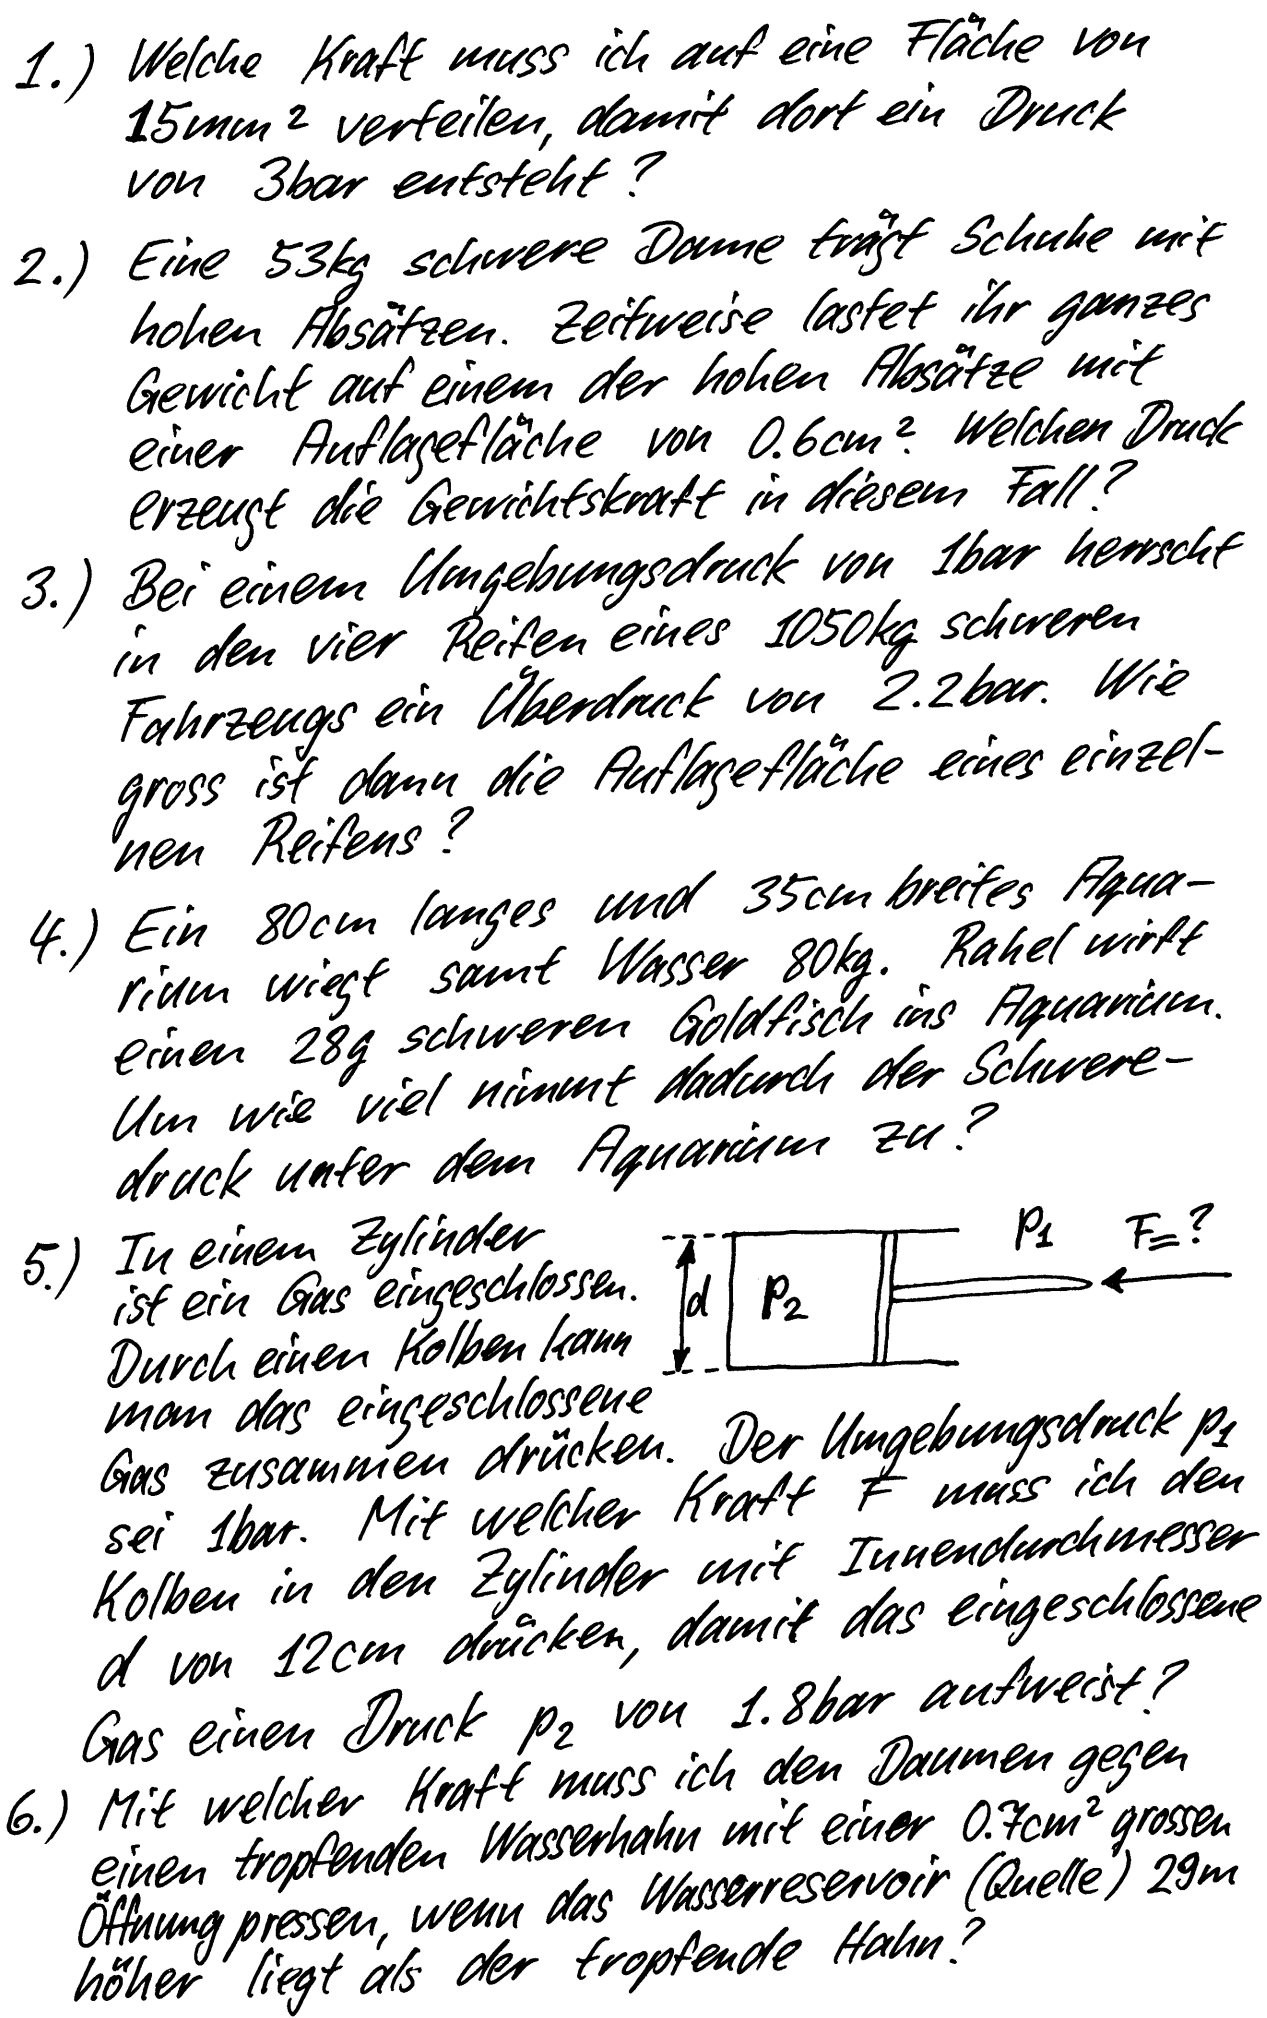 1.) Welche Kraft muss ich auf eine Fläche von
15mm² verteilen, damit dort ein Druck
von 3bar entsteht?
2.) Eine 53kg schwere Dame trägt Schuhe mit
hohen Absätzen. Zeitweise lastet ihr ganzes
Gewicht auf einem der hohen Absätze mit
einer Auflagefläche von 0.6cm². Welchen Druck
erzeugt die Gewichtskraft in diesem Fall?
3.) Bei einem Umgebungsdruck von 1bar herrscht
in den vier Reifen eines 1050kg schweren
Fahrzeugs ein Überdruck von 2.2bar. Wie
gross ist dann die Auflagefläche eines einzel-
nen Reifens?
4.) Ein 80cm langes und 35cm breites Aqua-
rium wiegt samt Wasser 80kg. Rahel wirft
einen 28g schweren Goldfisch ins Aquarium.
Um wie viel nimmt dadurch der Schwere-
druck unter dem Aquarium zu?
5.) In einem Zylinder
ist ein Gas eingeschlossen.
Durch einen Kolben kann
man das eingeschlossene
d p₂ p₁ F=?
Gas zusammen drücken. Der Umgebungsdruck p₁
sei 1bar. Mit welcher Kraft F muss ich den
Kolben in den Zylinder mit Innendurchmesser
d von 12cm drücken, damit das eingeschlossene
Gas einen Druck p₂ von 1.8bar aufweist?
6.) Mit welcher Kraft muss ich den Daumen gegen
einen tropfenden Wasserhahn mit einer 0.7cm² grossen
Öffnung pressen, wenn das Wasserreservoir (Quelle) 29m
höher liegt als der tropfende Hahn?